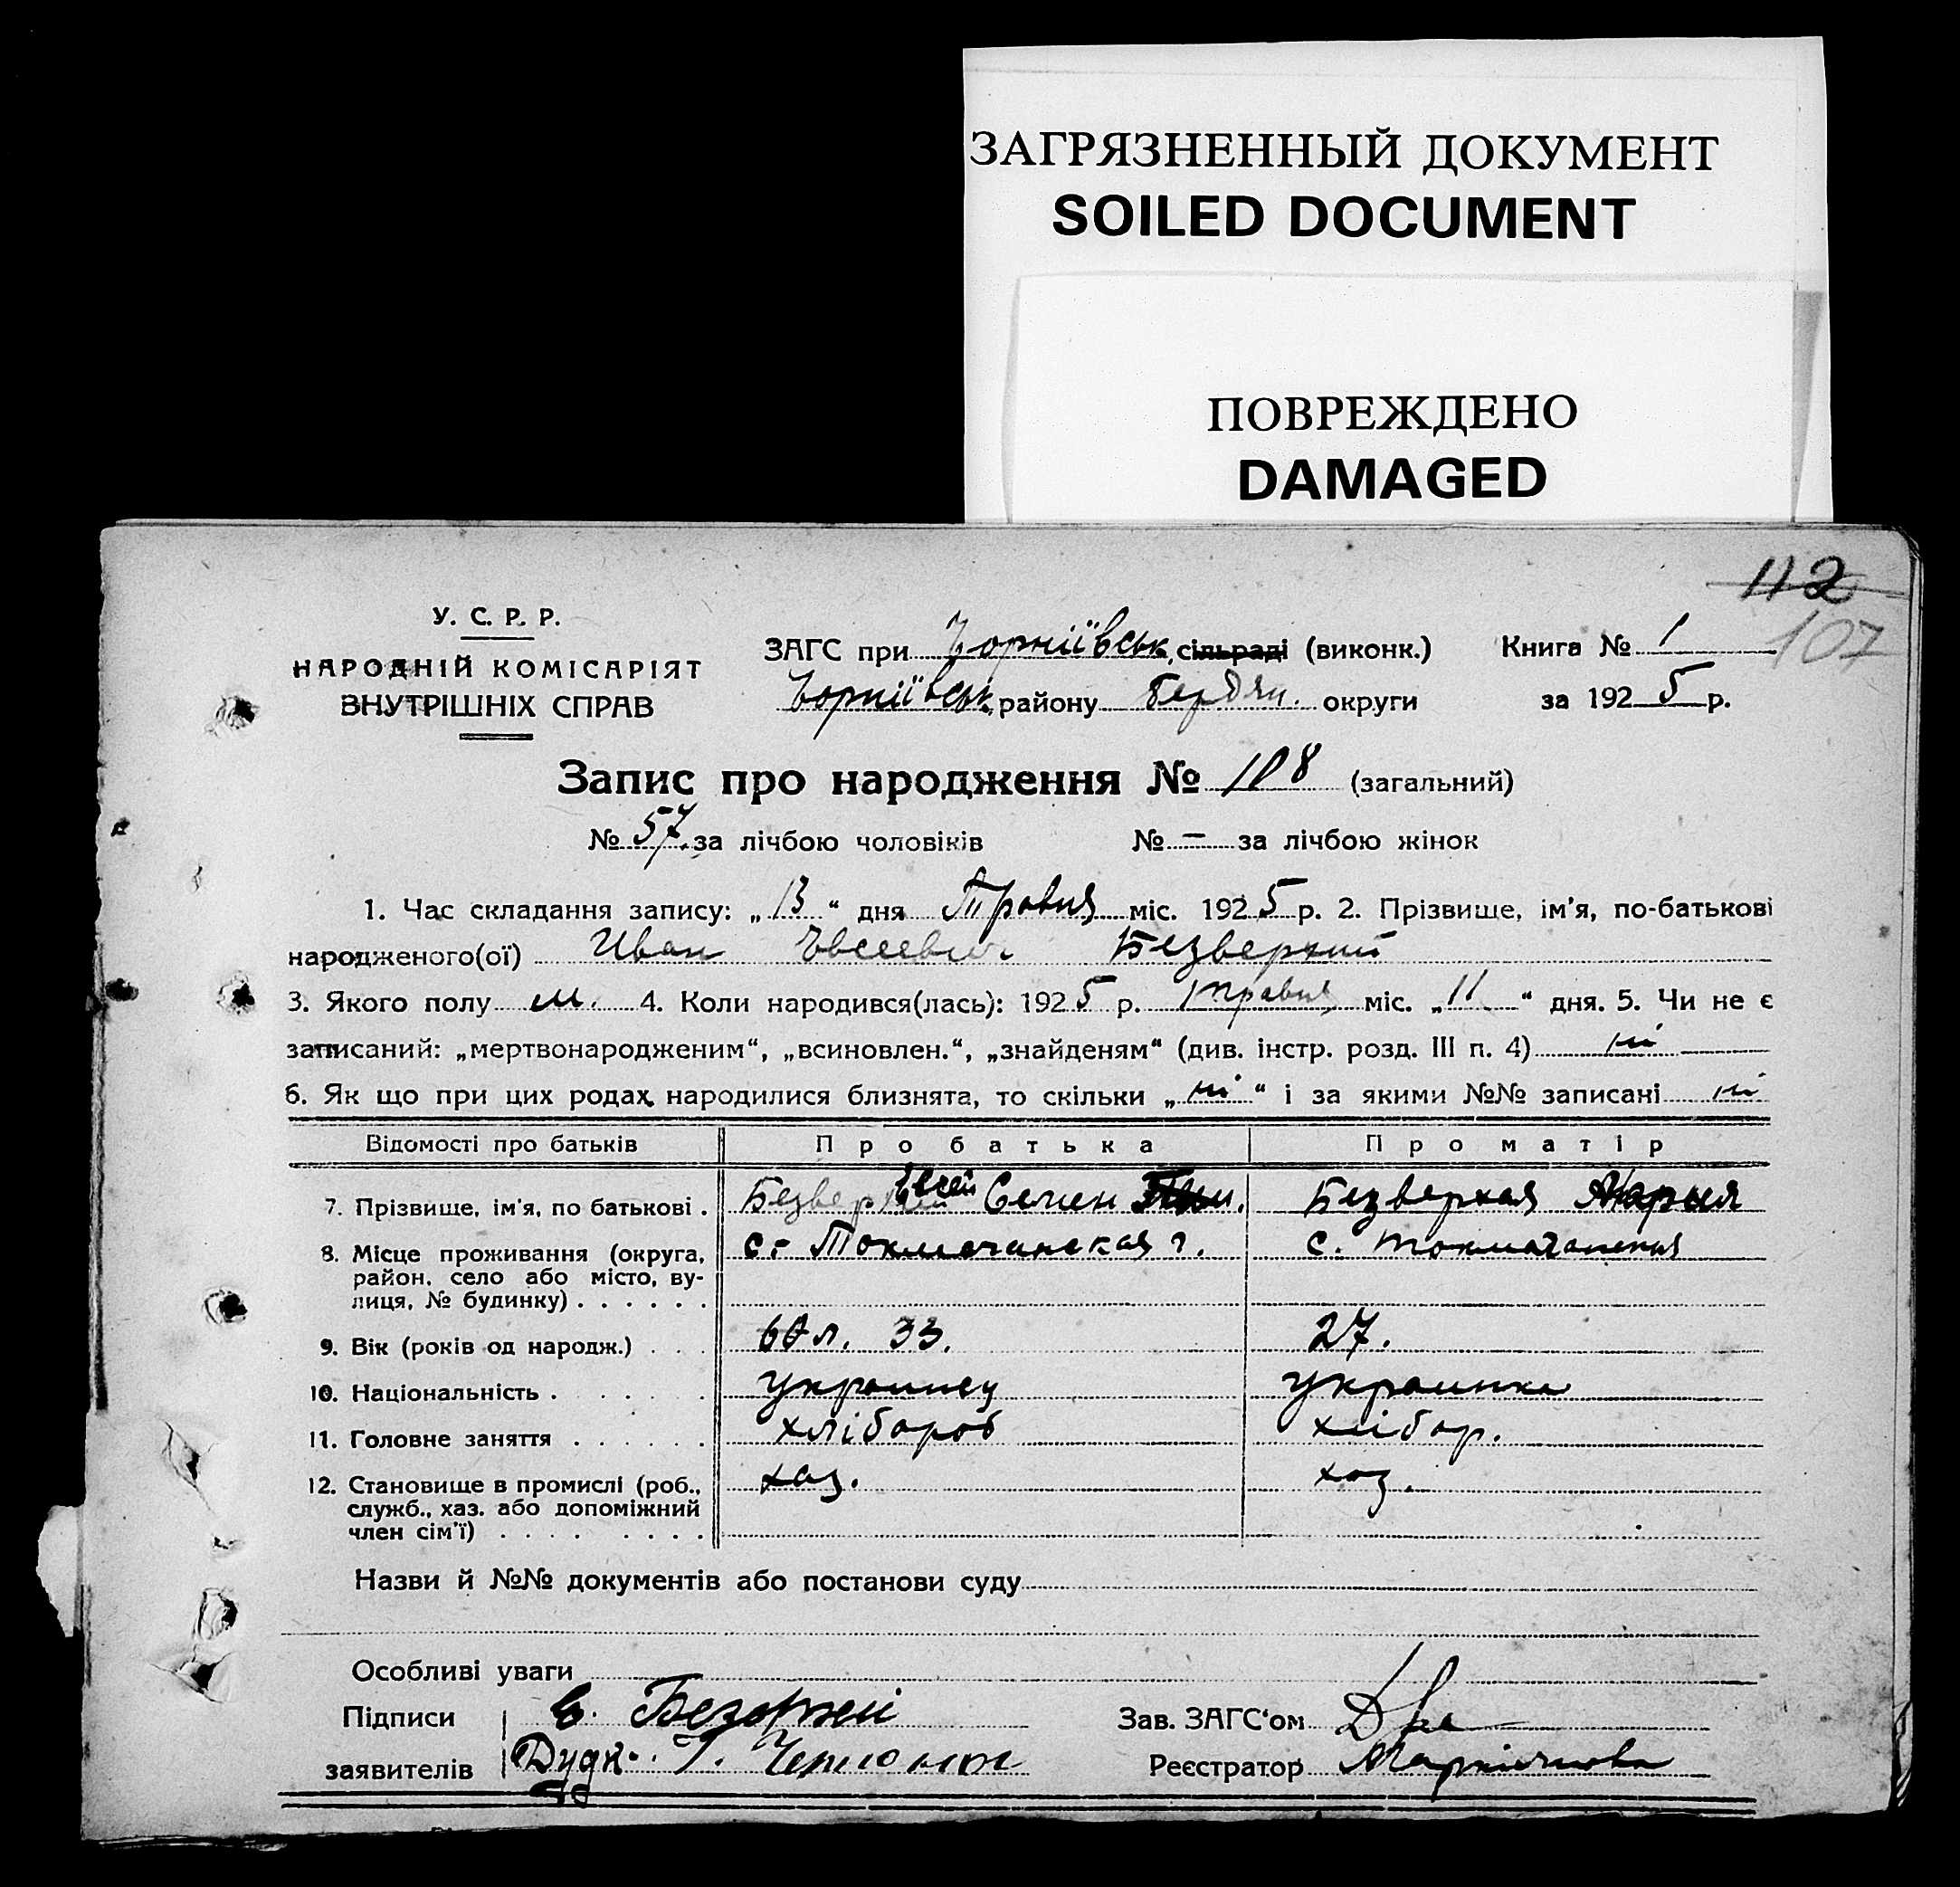 ЗАГРЯЗНЕННЫЙ ДОКУМЕНТ
SOILED DOCUMENT
ПОВРЕЖДЕНО
DAMAGED
112
107
У. С. Р. Р.
НАРОДНІЙ КОМІСАРІЯТ
ВНУТРІШНІХ СПРАВ
ЗАГС при Чорніївськ. сільраді (виконк.) Книга № 1
Чорніївськ. району Бердян. округи за 1925 р.
Запис про народження № 108 (загальний)
№ 57 за лічбою чоловіків № — за лічбою жінок
1. Час складання запису: „13“ дня Травня міс. 1925 р. 2. Прізвище, ім'я, по-батькові
народженого(ої) Иван Евсеевич Безверхий
3. Якого полу м. 4. Коли народився(лась): 1925 р. травня міс. „11“ дня. 5. Чи не є
записаний: „мертвонародженим“, „всиновлен.“, „знайденям“ (див. інстр. розд. III п. 4) ні
6. Як що при цих родах народилися близнята, то скільки „ні“ і за якими №№ записані ні
Відомості про батьків Про батька Про матір
7. Прізвище, ім'я, по батькові . Безверхий Евсей Семен Безверхая Мария
8. Місце проживання (округа, с. Токмачанская г. с. Токмачанская
район, село або місто, ву-
лиця, № будинку) . . . . . .
9. Вік (років од народж.) . . . 33. 27.
10. Національність . . . . . . украинец украинка
11. Головне заняття . . . . . . хлібороб хлібор.
12. Становище в промислі (роб., хаз. хоз.
служб., хаз. або допоміжний
член сім'ї) . . . . . . . .
Назви й №№ документів або постанови суду
Особливі уваги
Підписи Е. Безверхий Зав. ЗАГС'ом
заявителів Реєстратор